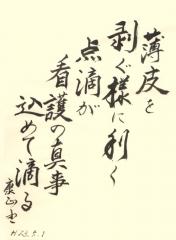 薄皮を
剥ぐ様に利く
点滴が
看護の真事
込めて滴る
康正書
H23.5.1